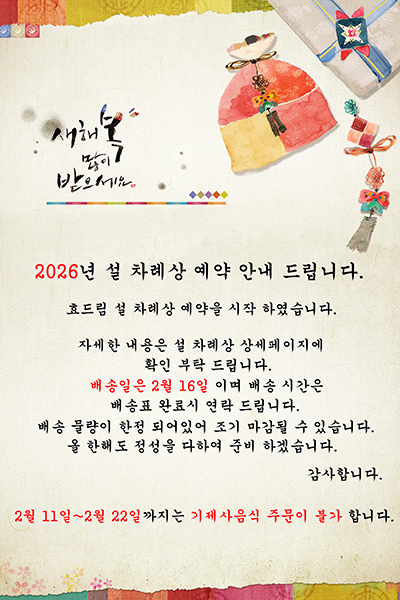 새해 복
많이
받으세요.
2026년 설 차례상 예약 안내 드립니다.
효드림 설 차례상 예약을 시작 하였습니다.
자세한 내용은 설 차례상 상세페이지에
확인 부탁 드립니다.
배송일은 2월 16일 이며 배송 시간은
배송표 완료시 연락 드립니다.
배송 물량이 한정 되어있어 조기 마감될 수 있습니다.
올 한해도 정성을 다하여 준비 하겠습니다.
감사합니다.
2월 11일~2월 22일까지는 기제사음식 주문이 불가 합니다.